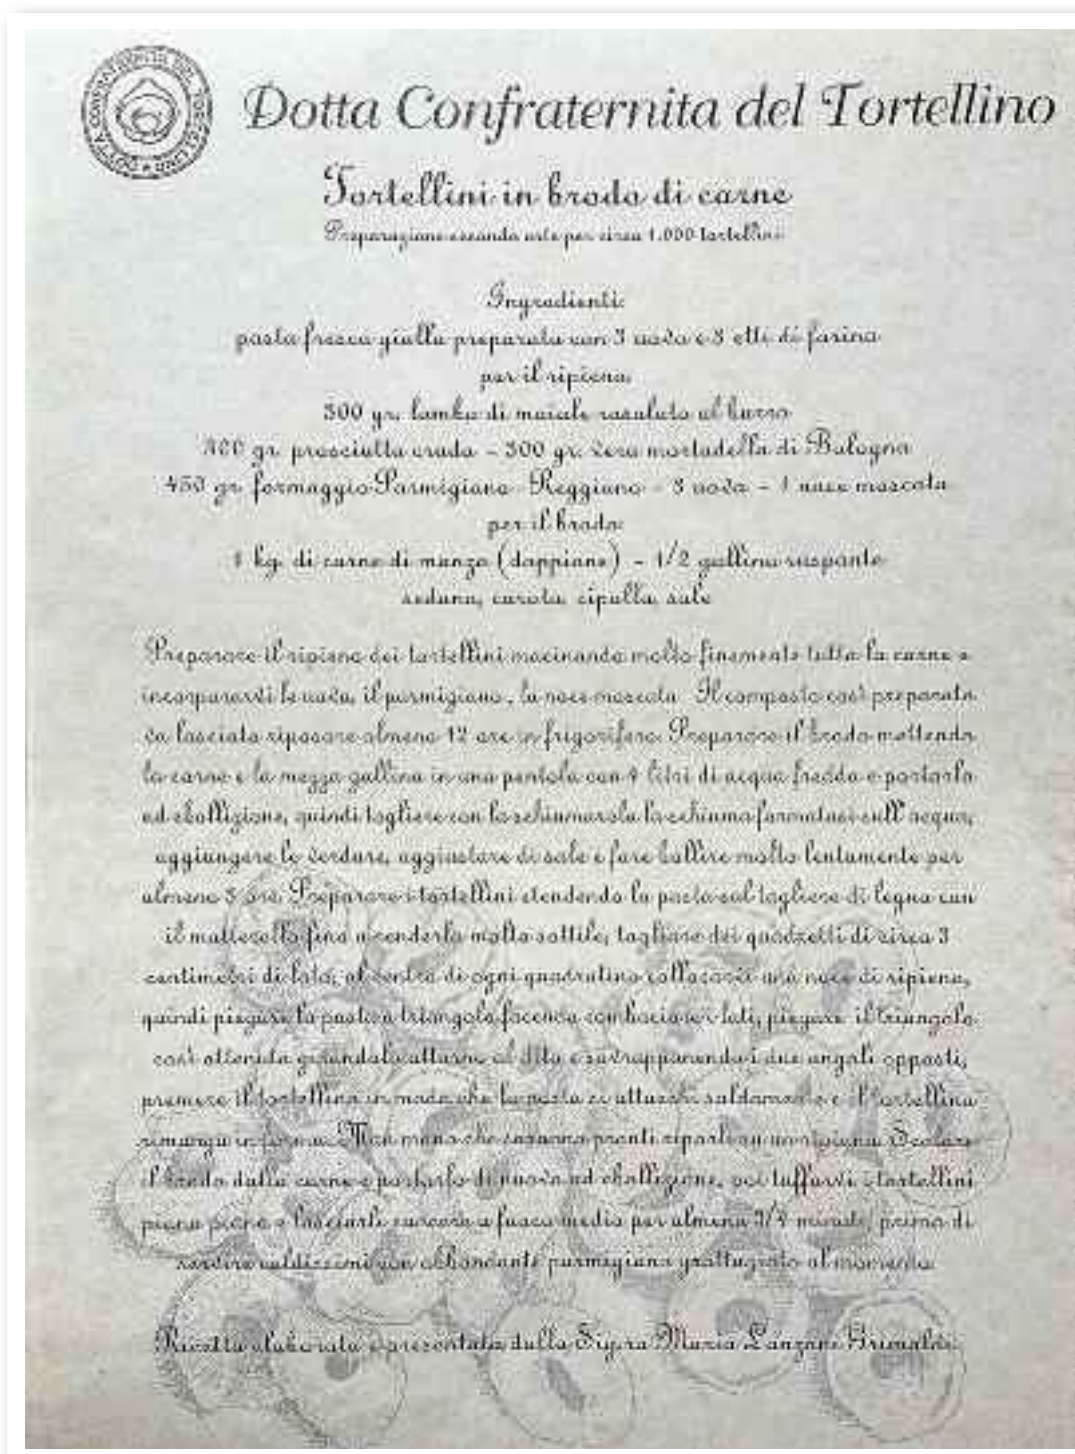 DOTTA CONFRATERNITA DEL TORTELLINO
Dotta Confraternita del Tortellino
Tortellini in brodo di carne
Preparazione secondo arte per circa 1.000 tortellini
Ingredienti:
pasta fresca gialla preparata con uova e etti di farina
per il ripieno:
300 gr. lombo di maiale rosolato al burro
gr. prosciutto crudo - 300 gr. vera mortadella di Bologna
450 gr formaggio Parmigiano Reggiano - 3 uova - 1 noce moscata
per il brodo:
1 kg. di carne di manzo (doppione) - 1/2 gallina ruspante
sedano, carota, cipolla, sale
Preparare il ripieno dei tortellini macinando molto finemente tutta la carne e
incorporarvi le uova, il parmigiano, la noce moscata. Il composto così preparato
va lasciato riposare almeno 12 ore in frigorifero. Preparare il brodo mettendo
la carne e la mezza gallina in una pentola con 4 litri di acqua fredda e portarla
ad ebollizione, quindi togliere con la schiumarola la schiuma formatasi sull'acqua,
aggiungere le verdure, aggiustare di sale e fare bollire molto lentamente per
almeno 3 ore. Preparare i tortellini stendendo la pasta sul tagliere di legno con
il matterello fino a renderla molto sottile, tagliare dei quadretti di circa 3
centimetri di lato, al centro di ogni quadratino collocarvi una noce di ripieno,
quindi piegare la pasta a triangolo facendo combaciare i lati, piegare il triangolo
così ottenuto girandolo attorno al dito e sovrapponendo i due angoli opposti,
premere il tortellino in modo che la pasta si attacchi saldamente e il tortellino
rimanga in forma. Man mano che saranno pronti riporli su un ripiano. Scolare
il brodo dalla carne e portarlo di nuovo ad ebollizione, poi tuffarvi i tortellini
piano piano e lasciarli cuocere a fuoco medio per almeno 3/4 minuti, prima di
servire caldissimi con abbondante parmigiano grattugiato al momento.
Ricetta elaborata e presentata dalla Sig.ra Maria Lanzoni Grimaldi